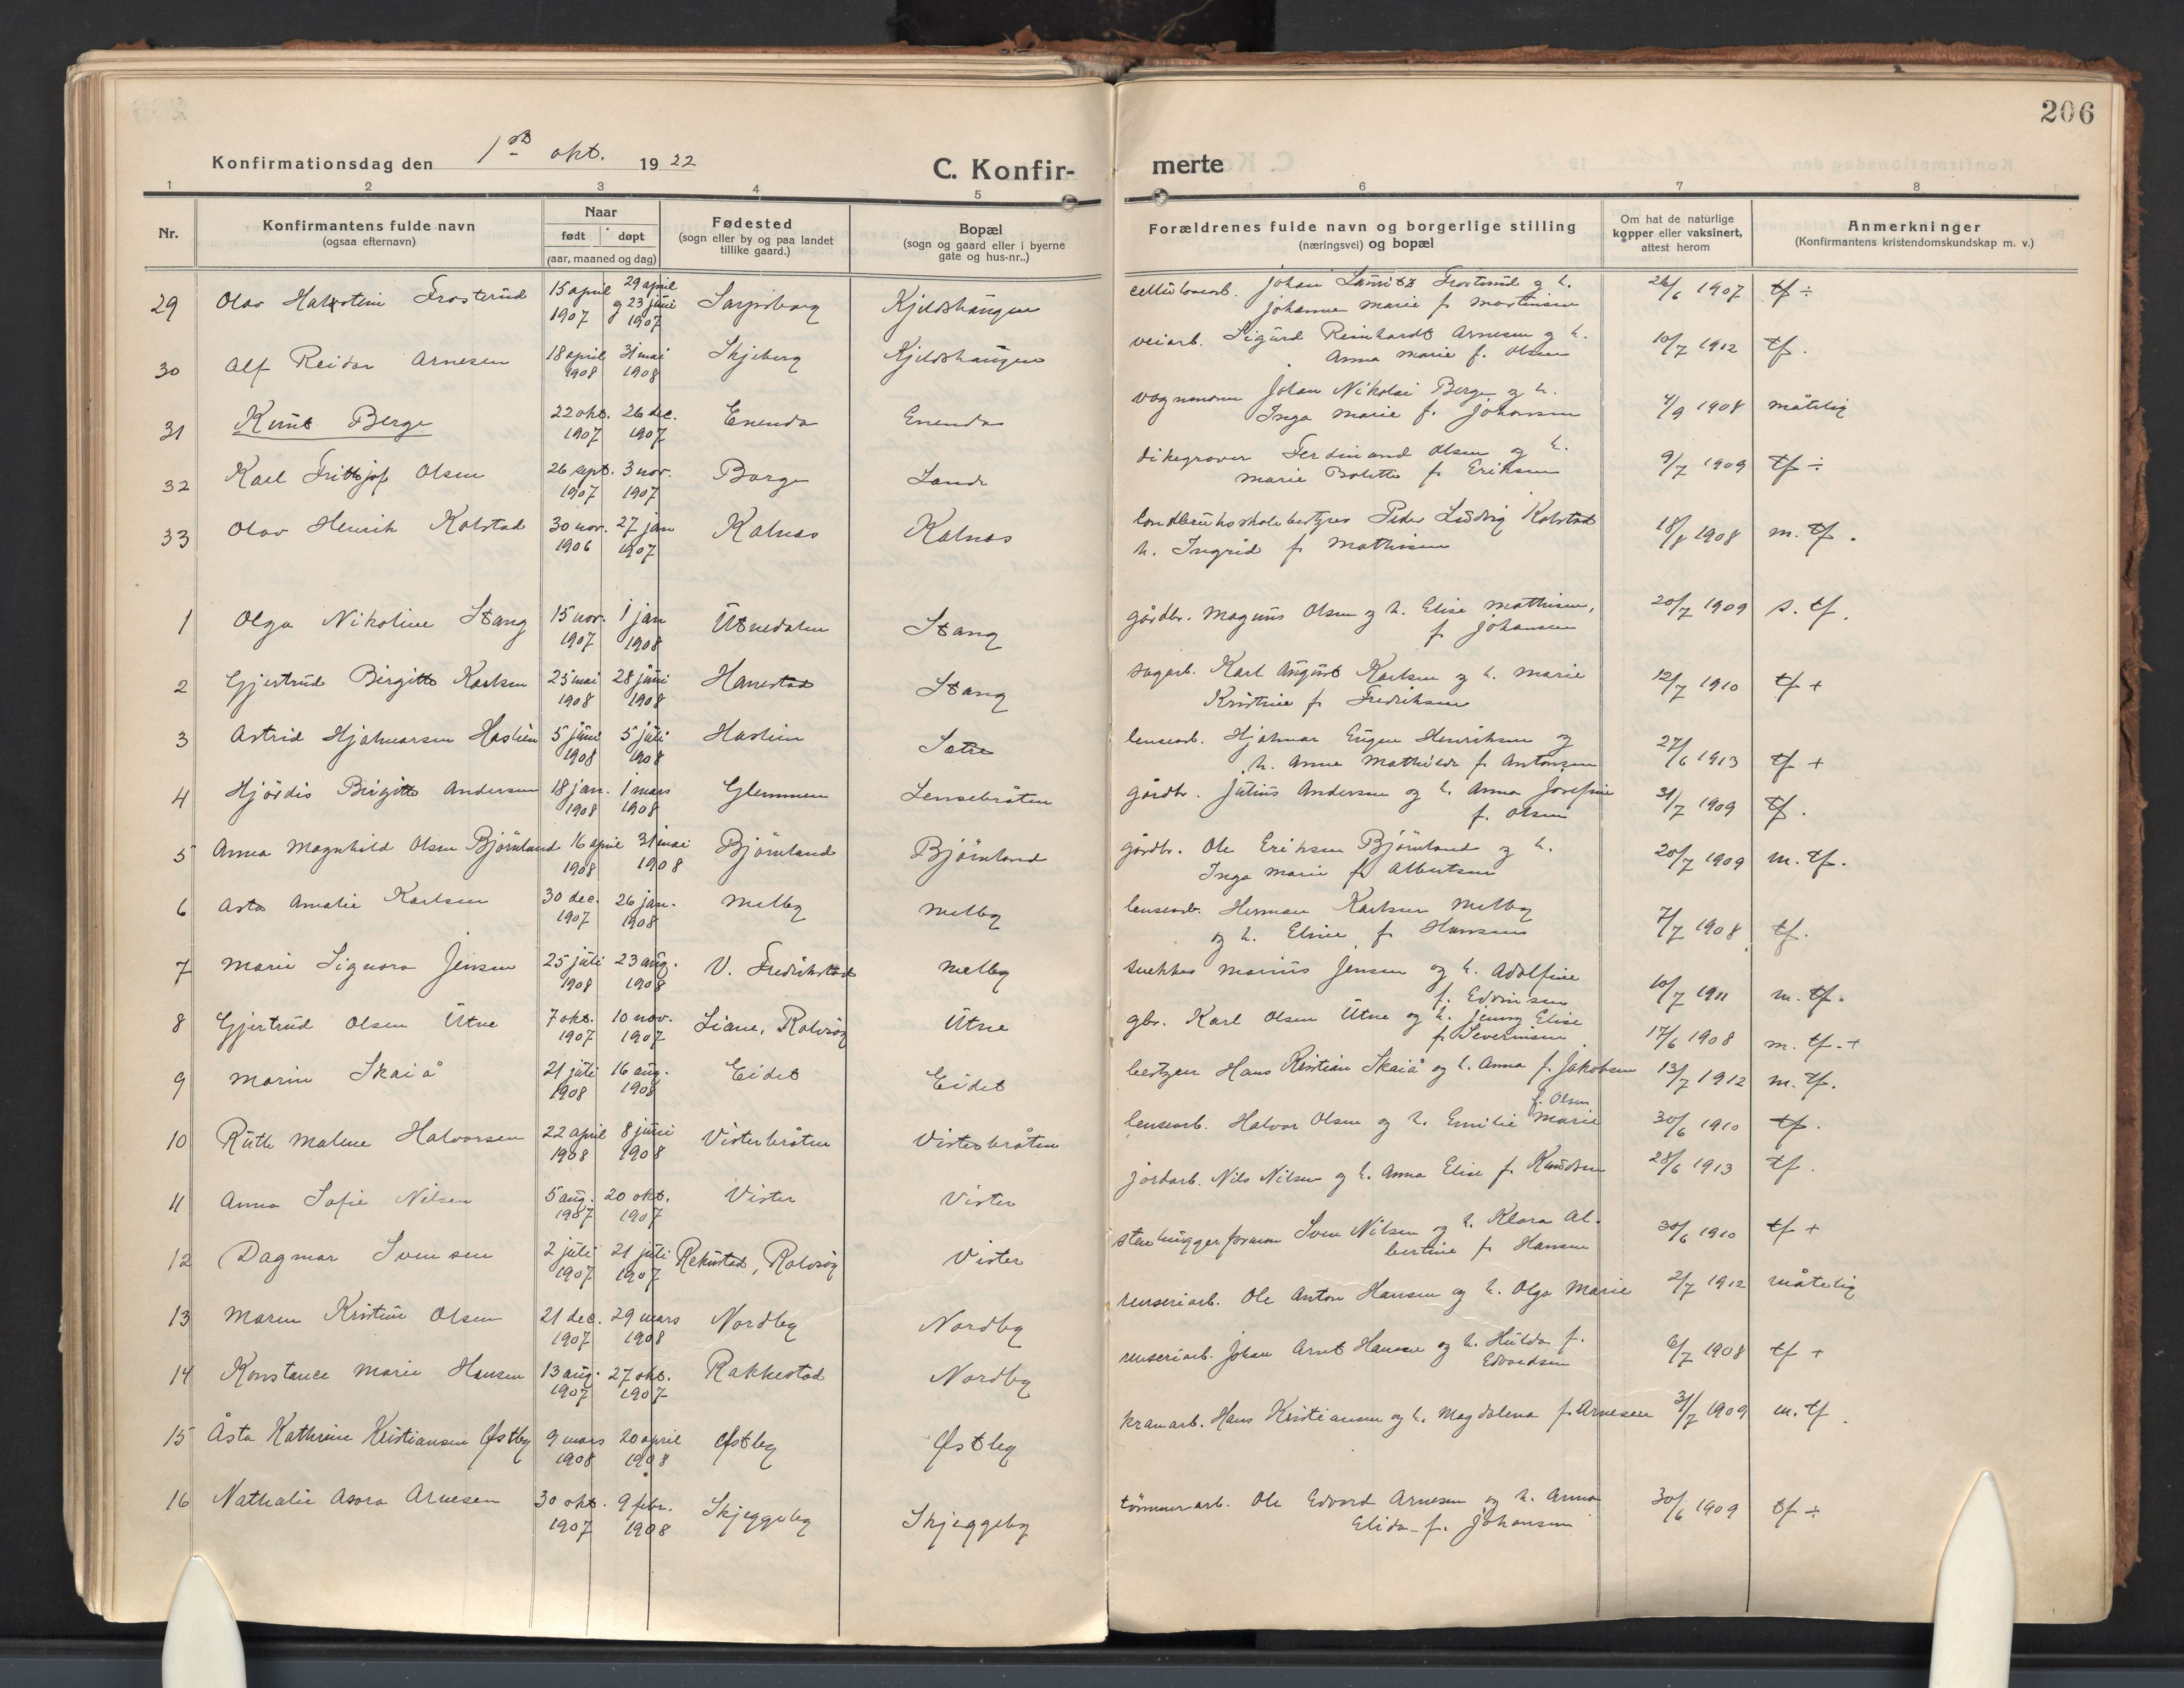 206
Konfirmationsdag den 1st okt. 1922
C. Konfir-
merte
1 2 3 4 5 6 7 8
Nr.
Konfirmantens fulde navn
(ogsaa efternavn)
Naar
født døpt
(aar, maaned og dag)
Fødested
(sogn eller by og paa landet
tillike gaard.)
Bopæl
(sogn og gaard eller i byerne
gate og hus-nr..)
Forældrenes fulde navn og borgerlige stilling
(næringsvei) og bopæl
Om hat de naturlige
kopper eller vaksinert,
attest herom
Anmerkninger
(Konfirmantens kristendomskundskap m. v.)
29 Olav Halvstein Frosterud 15 april 1907 29 april g 23 juni 1907 Sarpsborg Kjeldshaugen
cellulosearb. Johan Lauritz Frosterud g h.
Johanne Marie f. Martinsen 26/6 1907 tf ÷
30 Alf Reidar Arnesen 18 april 1908 31 mai 1908 Skjeberg Kjeldshaugen
veiarb. Sigurd Reinhardt Arnesen g h.
Anna Marie f. Olsen 10/7 1912 tf.
31 Knut Berge 22 okt. 1907 26 dec. 1907 Enenda Enenda
vognmann Johan Nikolai Berge g h.
Inga Marie f. Johansen 4/9 1908 måtelig
32 Karl Frithjof Olsen 26 sept. 1907 3 nov. 1907 Borge Lande
dikegraver Ferdinand Olsen og h.
Marie Bolette f. Eriksen 9/7 1909 tf ÷
33 Olav Henrik Kolstad 30 nov. 1906 27 jan 1907 Kalnes Kalnes
landbruksskolebestyrer Peder Ludvig Kolstad
h. Ingrid f. Mathisen 18/8 1908 m. tf.
1 Olga Nikoline Stang 15 nov. 1907 1 jan 1908 Utnedalen Stang
gårdbr. Magnus Olsen g h. Elise Mathisen,
f. Johansen 20/7 1909 s. tf.
2 Gjertrud Birgitte Karlsen 25 mai 1908 28 juni 1908 Hanestad Stang
sagarb. Karl August Karlsen g h. Marie
Kristine f. Fredriksen 12/7 1910 tf +
3 Astrid Hjalmarsen Haslein 5 juni 1908 5 juli 1908 Haslein Sætre
lensearb. Hjalmar Eugen Henriksen og
h. Anna Mathilde f. Antonsen 27/6 1913 tf +
4 Hjördis Birgitte Andersen 18 jan. 1908 1 mars 1908 Glemmen Lensebråten
gårdbr. Julius Andersen og h. Anna Josefine
f. Olsen 31/7 1909 tf.
5 Anna Magnhild Olsen Björnland 16 april 1908 31 mai 1908 Björnland Björnland
gårdbr. Ole Eriksen Björnland g h.
Inga Marie f. Albertsen 20/7 1909 m. tf.
6 Asta Amalie Karlsen 30 dec. 1907 26 jan. 1908 Melleby Melleby
lensearb. Herman Karlsen Melleby
og h. Eline f. Hansen 7/7 1908 tf.
7 Marie Signora Jensen 25 juli 1908 23 aug. 1908 V. Fredrikstad Melleby
snekker Marius Jensen og h. Adolfine
f. Edvinsen 10/7 1911 m. tf.
8 Gjertrud Olsen Utne 7 okt. 1907 10 nov. 1907 Liane, Rolvsöy Utne
gbr. Karl Olsen Utne og h. Jenny Elise
f. Severinsen 17/6 1908 m. tf. +
9 Marin Skaiå 21 juli 1908 16 aug. 1908 Eidet Eidet
bestyrer Hans Kristian Skaiå og h. Anna f. Jakobsen 13/7 1912 m. tf.
10 Ruth Malene Halvorsen 22 april 1908 8 juni 1908 Visterbråten Visterbråten
f. Olsen
lensearb. Halvor Olsen og h. Emilie Marie 30/6 1910 tf.
11 Anna Sofie Nilsen 5 aug. 1907 20 okt. 1907 Vister Vister
jordarb. Nils Nilsen og h. Anna Elise f. Knudsen 28/6 1913 tf.
12 Dagmar Svensen 2 juli 1907 21 juli 1907 Rekustad, Rolvsöy Vister
stenhugger formann Sven Nilsen og h. Klara Al-
bertine f. Hansen 30/6 1910 tf +
13 Maren Kristine Olsen 21 dec. 1907 29 mars 1908 Nordby Nordby
renseriarb. Ole Anton Hansen og h. Olga Marie 2/7 1912 måtelig
14 Konstance Marie Hansen 13 aug. 1907 27 okt. 1907 Rakkestad Nordby
renseriarb. Johan Arnt Hansen og h. Hulda f.
Edvardsen 6/7 1908 tf +
15 Åsta Kathrine Kristiansen Østby 9 mars 1908 20 april 1908 Østby Østby
kranarb. Hans Kristiansen og h. Magdalena f. Arnesen 31/7 1909 m. tf.
16 Nathalie Asora Arnesen 30 okt. 1907 9 febr. 1908 Skjeggeby Skjeggeby
tömmerarb. Ole Edvard Arnesen og h. Anna
Elida f. Johansen 30/6 1909 tf ÷